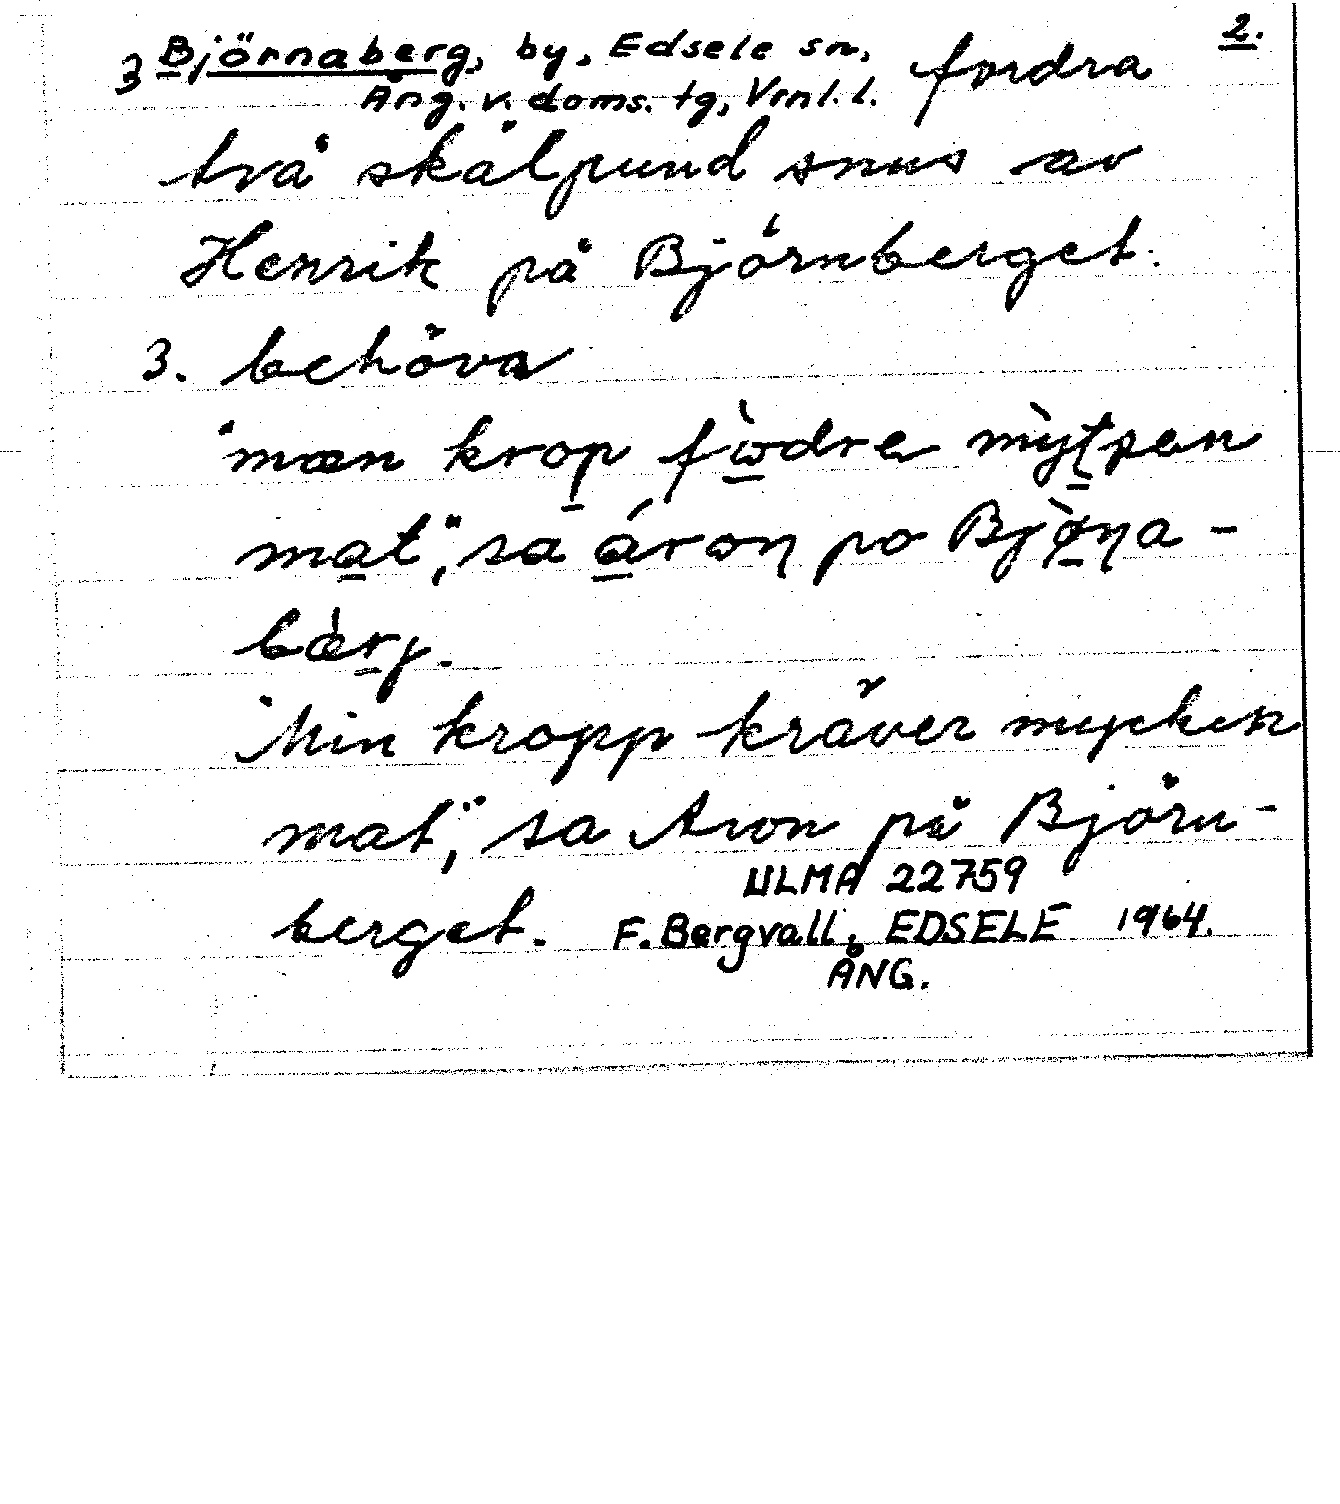 2.
3 Björnaberg, by, Edsele sn, fordra
Ång. v. doms. tg, Vrnl. l.
två skålpund snus av
Henrik på Björnberget.
3. behöva
"mæn krop fòdre mỳtꞩen
mat", sa áron po Bjø̀ɳa-
bærj.
"Min kropp kräver mycken
mat", sa Aron på Björn-
berget.
ULMA 22759
F. Bergvall, EDSELE 1964.
ÅNG.